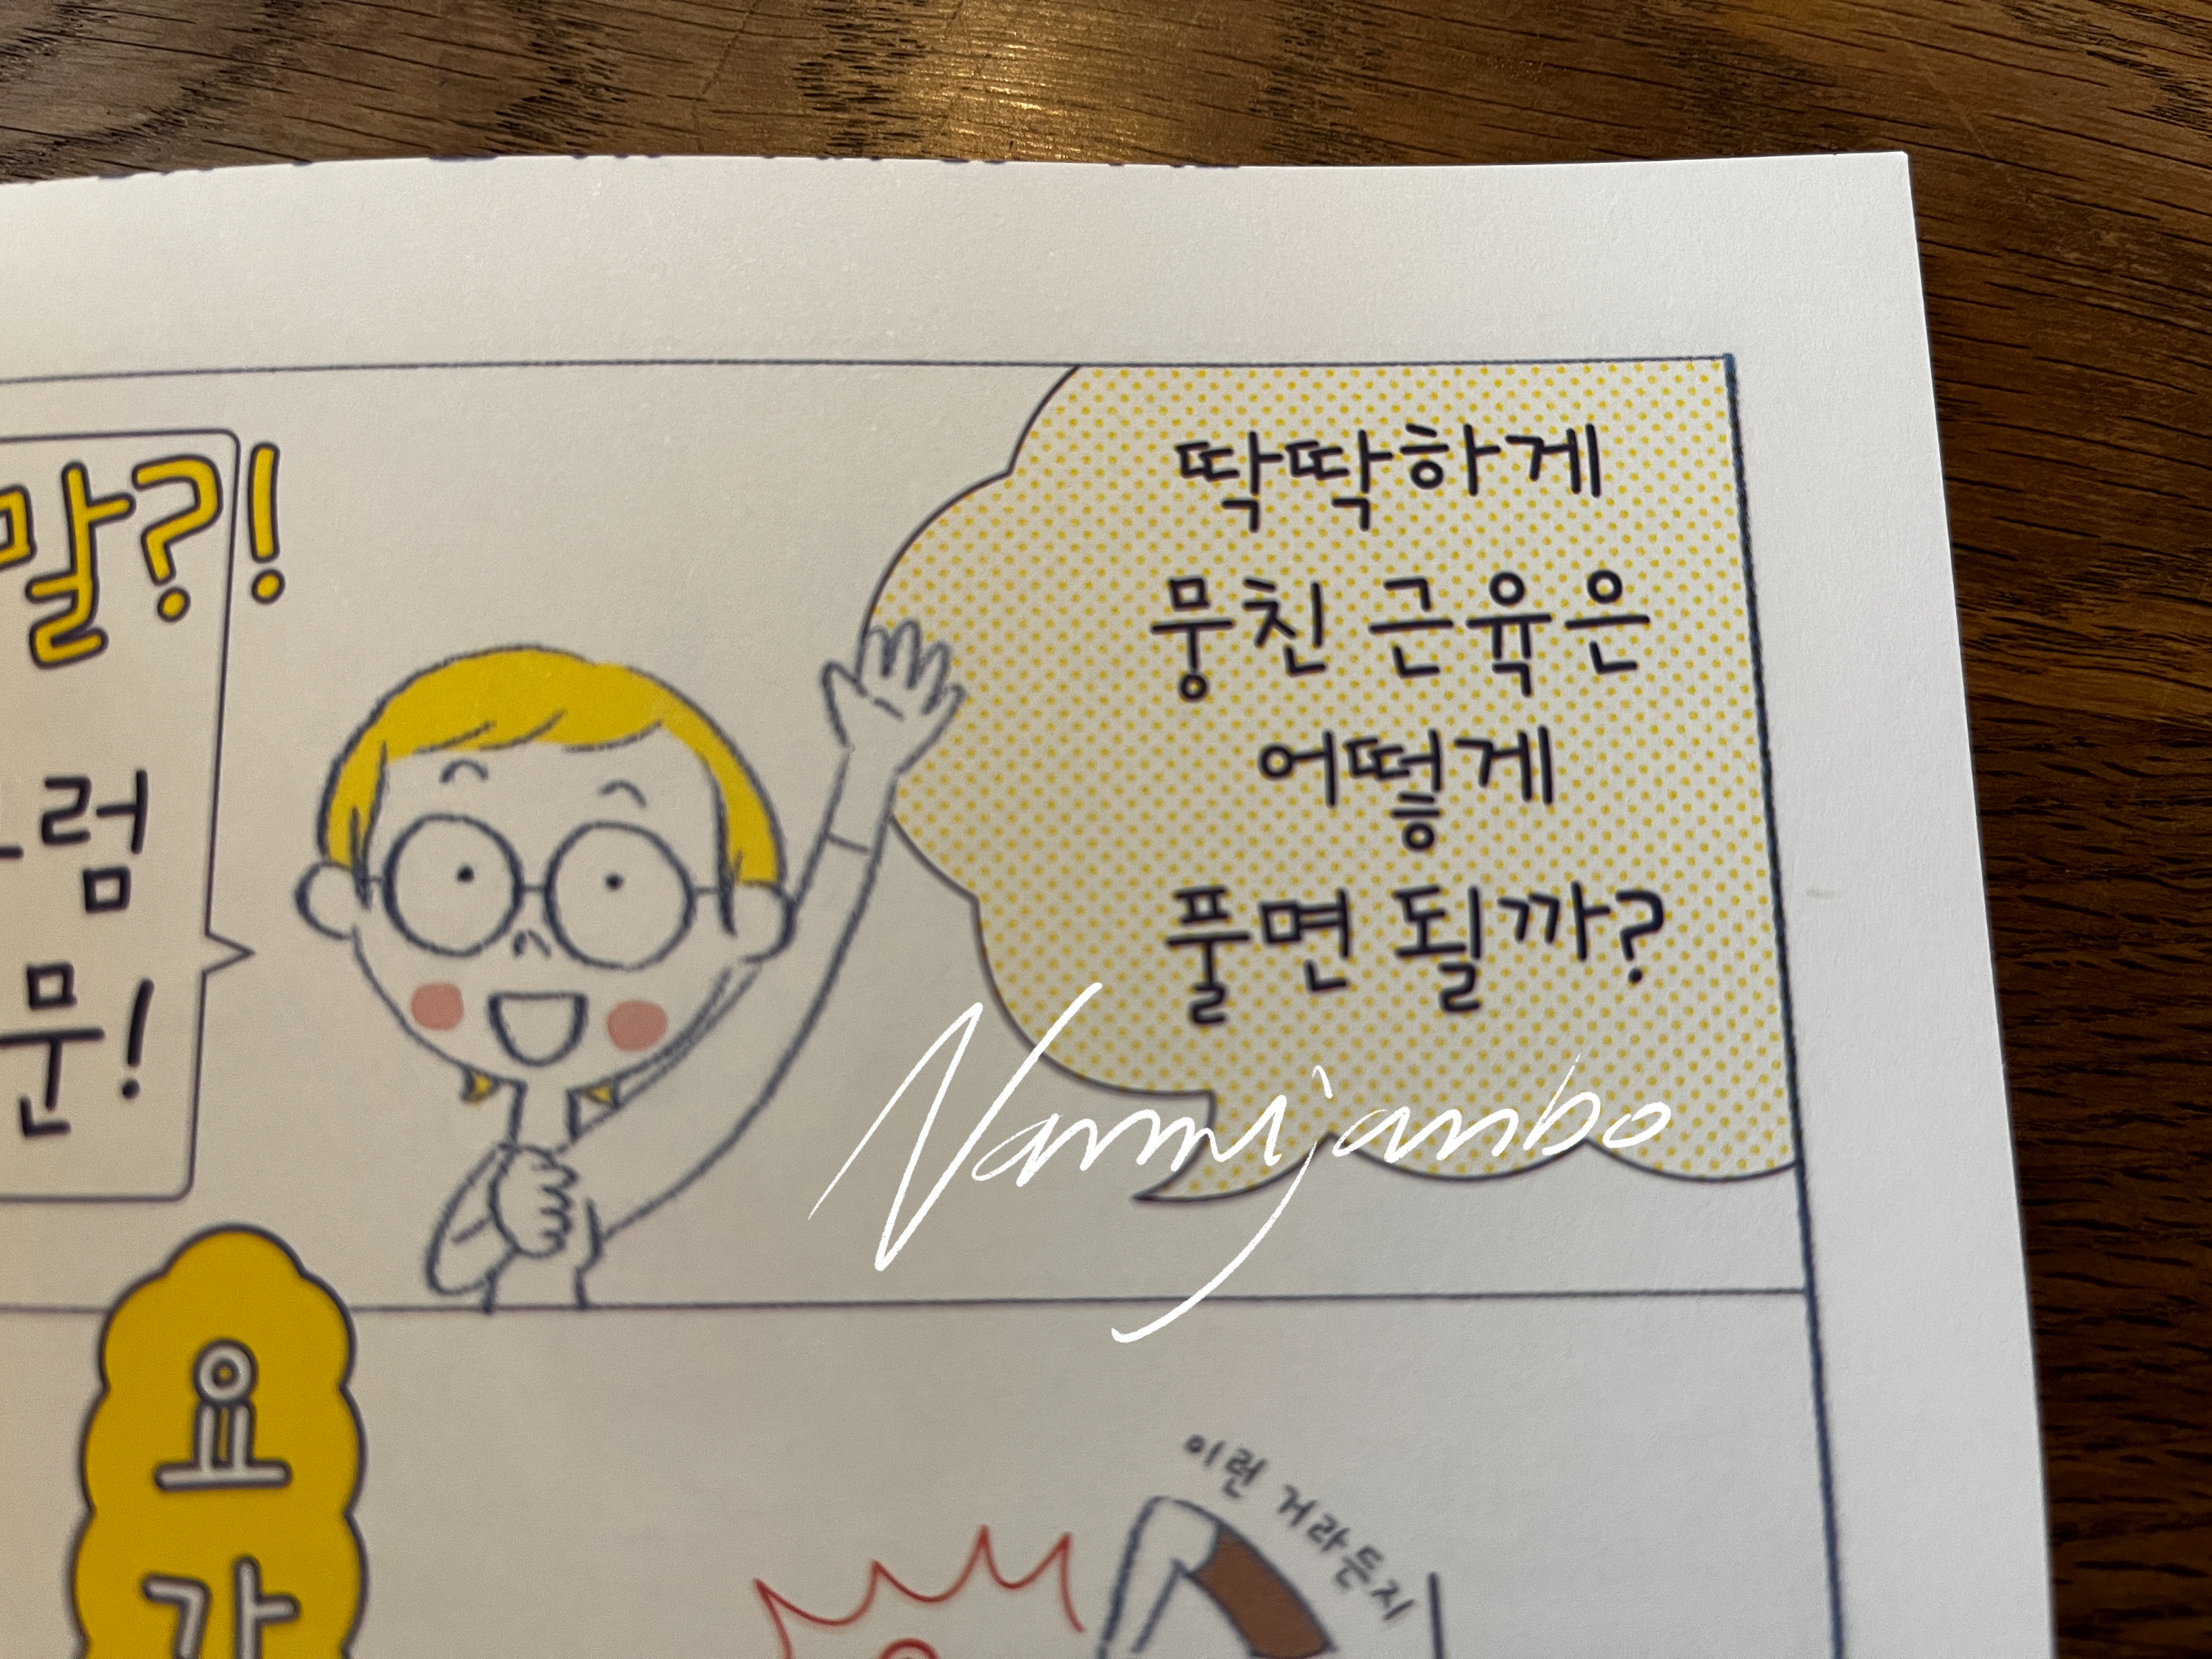 말?!
럼
문!
딱딱하게
뭉친 근육은
어떻게
풀면 될까?
Nammijanbo
요
가
이런 거라든지